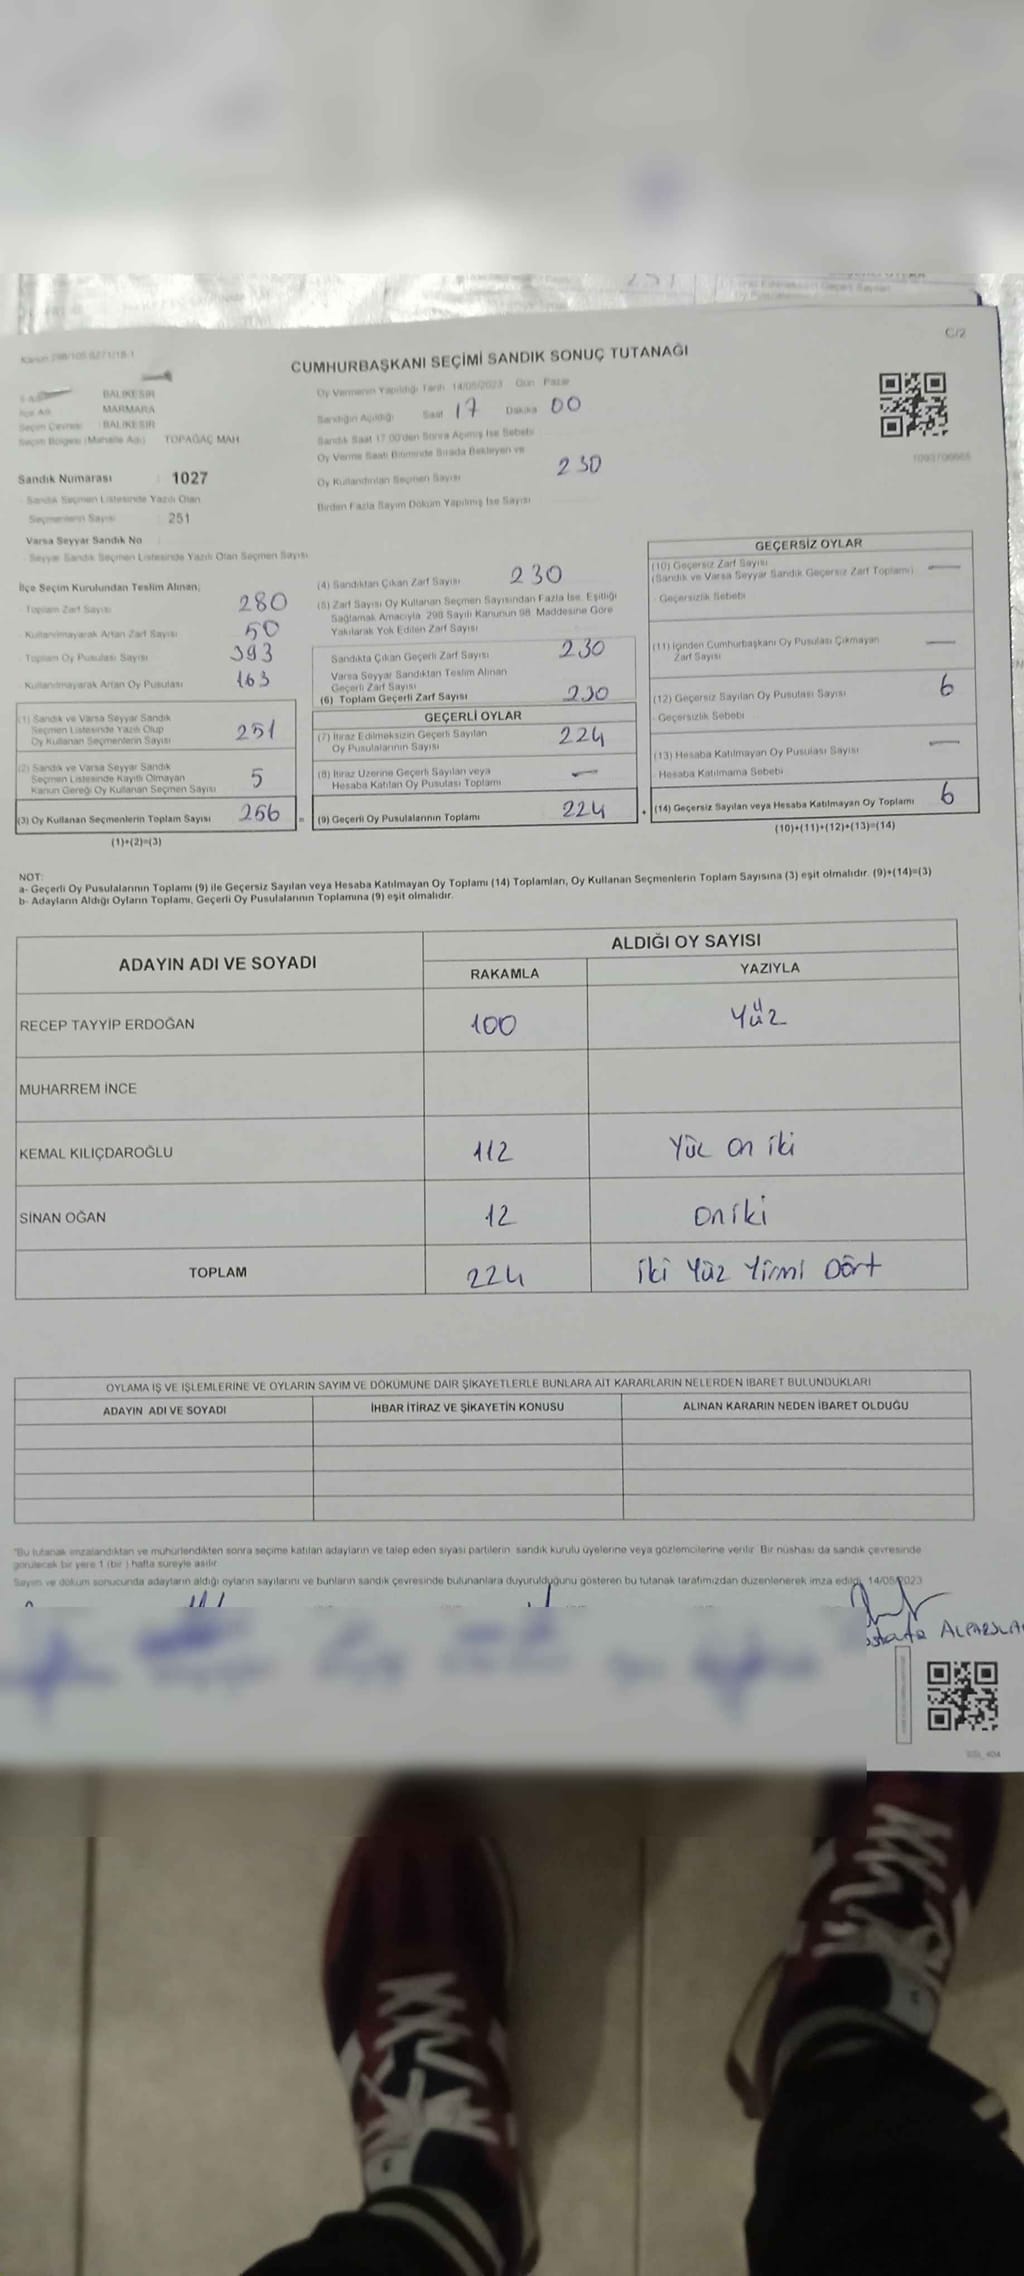 C/2
CUMHURBAŞKANI SEÇİMİ SANDIK SONUÇ TUTANAĞI
BALIKESİR
MARMARA
Seçim Çevresi : BALIKESİR
Seçim Bölgesi (Mahalle Adı) TOPAĞAÇ MAH
Oy Vermenin Yapıldığı Tarih 14/05/2023 Gün Pazar
Sandığın Açıldığı Saat 17 Dakika 00
Sandık Saat 17.00'den Sonra Açımış İse Sebebi
Oy Verme Saati Bitiminde Sırada Bekleyen ve
Oy Kullandırılan Seçmen Sayısı 230
Birden Fazla Sayım Döküm Yapılmış İse Sayısı
Sandık Numarası : 1027
- Sandık Seçmen Listesinde Yazılı Olan
Seçmenlerin Sayısı : 251
Varsa Seyyar Sandık No
- Seyyar Sandık Seçmen Listesinde Yazılı Olan Seçmen Sayısı
İlçe Seçim Kurulundan Teslim Alınan;
- Toplam Zarf Sayısı 280
- Kullanılmayarak Artan Zarf Sayısı 50
- Toplam Oy Pusulası Sayısı 393
- Kullanılmayarak Artan Oy Pusulası 163
(1) Sandık ve Varsa Seyyar Sandık
Seçmen Listesinde Yazılı Olup
Oy Kullanan Seçmenlerin Sayısı 251
(2) Sandık ve Varsa Seyyar Sandık
Seçmen Listesinde Kayıtlı Olmayan
Kanun Gereği Oy Kullanan Seçmen Sayısı 5
(3) Oy Kullanan Seçmenlerin Toplam Sayısı 256
(1)+(2)=(3)
(4) Sandıktan Çıkan Zarf Sayısı 230
(5) Zarf Sayısı Oy Kullanan Seçmen Sayısından Fazla İse, Eşitliği
Sağlamak Amacıyla, 298 Sayılı Kanunun 98. Maddesine Göre
Yakılarak Yok Edilen Zarf Sayısı
Sandıkta Çıkan Geçerli Zarf Sayısı 230
Varsa Seyyar Sandıktan Teslim Alınan
Geçerli Zarf Sayısı
(6) Toplam Geçerli Zarf Sayısı 230
GEÇERLİ OYLAR
(7) İtiraz Edilmeksizin Geçerli Sayılan
Oy Pusulalarının Sayısı 224
(8) İtiraz Üzerine Geçerli Sayılan veya
Hesaba Katılan Oy Pusulası Toplamı —
= (9) Geçerli Oy Pusulalarının Toplamı 224
GEÇERSİZ OYLAR
(10) Geçersiz Zarf Sayısı
(Sandık ve Varsa Seyyar Sandık Geçersiz Zarf Toplamı) —
- Geçersizlik Sebebi
(11) İçinden Cumhurbaşkanı Oy Pusulası Çıkmayan
Zarf Sayısı —
(12) Geçersiz Sayılan Oy Pusulası Sayısı 6
- Geçersizlik Sebebi
(13) Hesaba Katılmayan Oy Pusulası Sayısı —
- Hesaba Katılmama Sebebi
+ (14) Geçersiz Sayılan veya Hesaba Katılmayan Oy Toplamı 6
(10)+(11)+(12)+(13)=(14)
NOT:
a- Geçerli Oy Pusulalarının Toplamı (9) ile Geçersiz Sayılan veya Hesaba Katılmayan Oy Toplamı (14) Toplamları, Oy Kullanan Seçmenlerin Toplam Sayısına (3) eşit olmalıdır. (9)+(14)=(3)
b- Adayların Aldığı Oyların Toplamı, Geçerli Oy Pusulalarının Toplamına (9) eşit olmalıdır.
ADAYIN ADI VE SOYADI ALDIĞI OY SAYISI
RAKAMLA YAZIYLA
RECEP TAYYİP ERDOĞAN 100 Yüz
MUHARREM İNCE
KEMAL KILIÇDAROĞLU 112 Yüz on iki
SİNAN OĞAN 12 oniki
TOPLAM 224 iki Yüz Yirmi Dört
OYLAMA İŞ VE İŞLEMLERİNE VE OYLARIN SAYIM VE DÖKÜMÜNE DAİR ŞİKAYETLERLE BUNLARA AİT KARARLARIN NELERDEN İBARET BULUNDUKLARI
ADAYIN ADI VE SOYADI İHBAR İTİRAZ VE ŞİKAYETİN KONUSU ALINAN KARARIN NEDEN İBARET OLDUĞU
*Bu tutanak imzalandıktan ve mühürlendikten sonra seçime katılan adayların ve talep eden siyasi partilerin sandık kurulu üyelerine veya gözlemcilerine verilir. Bir nüshası da sandık çevresinde
görülecek bir yere 1 (bir) hafta süreyle asılır.
Sayım ve döküm sonucunda adayların aldığı oyların sayılarını ve bunların sandık çevresinde bulunanlara duyurulduğunu gösteren bu tutanak tarafımızdan düzenlenerek imza edildi. 14/05/2023